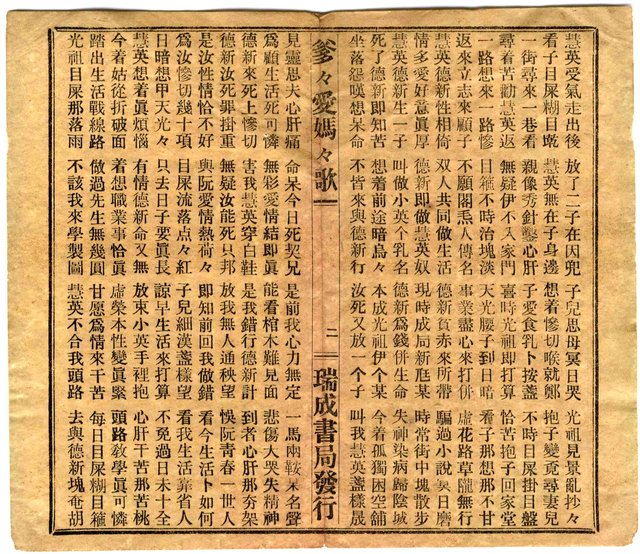 慧英受氣走出後 放了二子在因兜 子兒思母冥日哭 光祖見景亂抄々
看子目屎糊目 慧英無在子身邊 想着慘切喉就鄭 抱子變竟尋妻兒
一街尋來一巷看 親像秀針鑿心肝 子愛食乳卜按盞 不時目屎掛目盤
尋着苦勸慧英返 無疑伊不入家門 喜時光祖即打算 恰苦抱子回家堂
一路想來一路慘 目不時治塊淡 天光腰子到日暗 看子那想那不甘
返來立志來顧子 不願閣乇人傳名 事業盡心來打併 虛花路草隴無行
慧英德新性相倚 双人共同做生活 德新賀赤來所帶 騙過小說冥日磨
情多愛好意眞厚 德新即做慧英奴 現時成局新尫某 時常街中塊散步
慧英德新生一子 叫做小英个乳名 德新爲錢併生命 失神染病歸陰城
死了德新即知苦 想着前途暗烏々 本成光祖伊个某 今着孤獨困空舖
坐落怨嘆想呆命 不皆來與德新行 汝死又放一个子 叫我慧英盞樣晟
爹々愛媽々歌 二 瑞成書局發行
見靈思夫心肝痛 命呆今日死契兄 是前我心力無定 一馬兩鞍呆名聲
爲顧生活死可憐 無彩愛情結即眞 能看棺木難見面 悲傷大哭失精神
德新來死上慘切 害我慧英穿白鞋 是我錯行德新計 到者心肝那夯架
德新汝死罪掛重 無疑汝能死只邦 放我無人通秧望 悞阮青春一世人
是汝性情恰不好 與阮愛情熱荷々 即知前回我做錯 看今生活卜如何
爲汝慘切幾十項 目屎流落点々紅 子兒細漢盞樣望 看我生活靠省人
日暗想甲天光々 只去日子要眞長 諒早生活來打算 不免過日未十全
慧英想着眞煩惱 有情德新命又無 放束小英手裡抱 心肝干苦那苦桃
今着姑從折破面 着想職業事恰眞 虛榮本性變眞緊 頭路敎學眞可憐
踏出生活戰線路 做過先生無幾圓 甘愿爲情來干苦 每日目屎糊目
光祖目屎那落雨 不該我來學製圖 慧英不合我頭路 去與德新塊奄胡